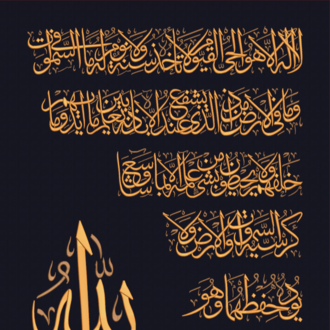 لا اله الا هو الحي القيوم لا تأخذه سنة ولا نوم له ما في السموات
وما في الارض من ذا الذي يشفع عنده الا باذنه يعلم ما بين ايديهم وما
خلفهم ولا يحيطون بشيء من علمه الا بما شاء وسع
كرسيه السموات والارض ولا
يؤده حفظهما وهو
الله